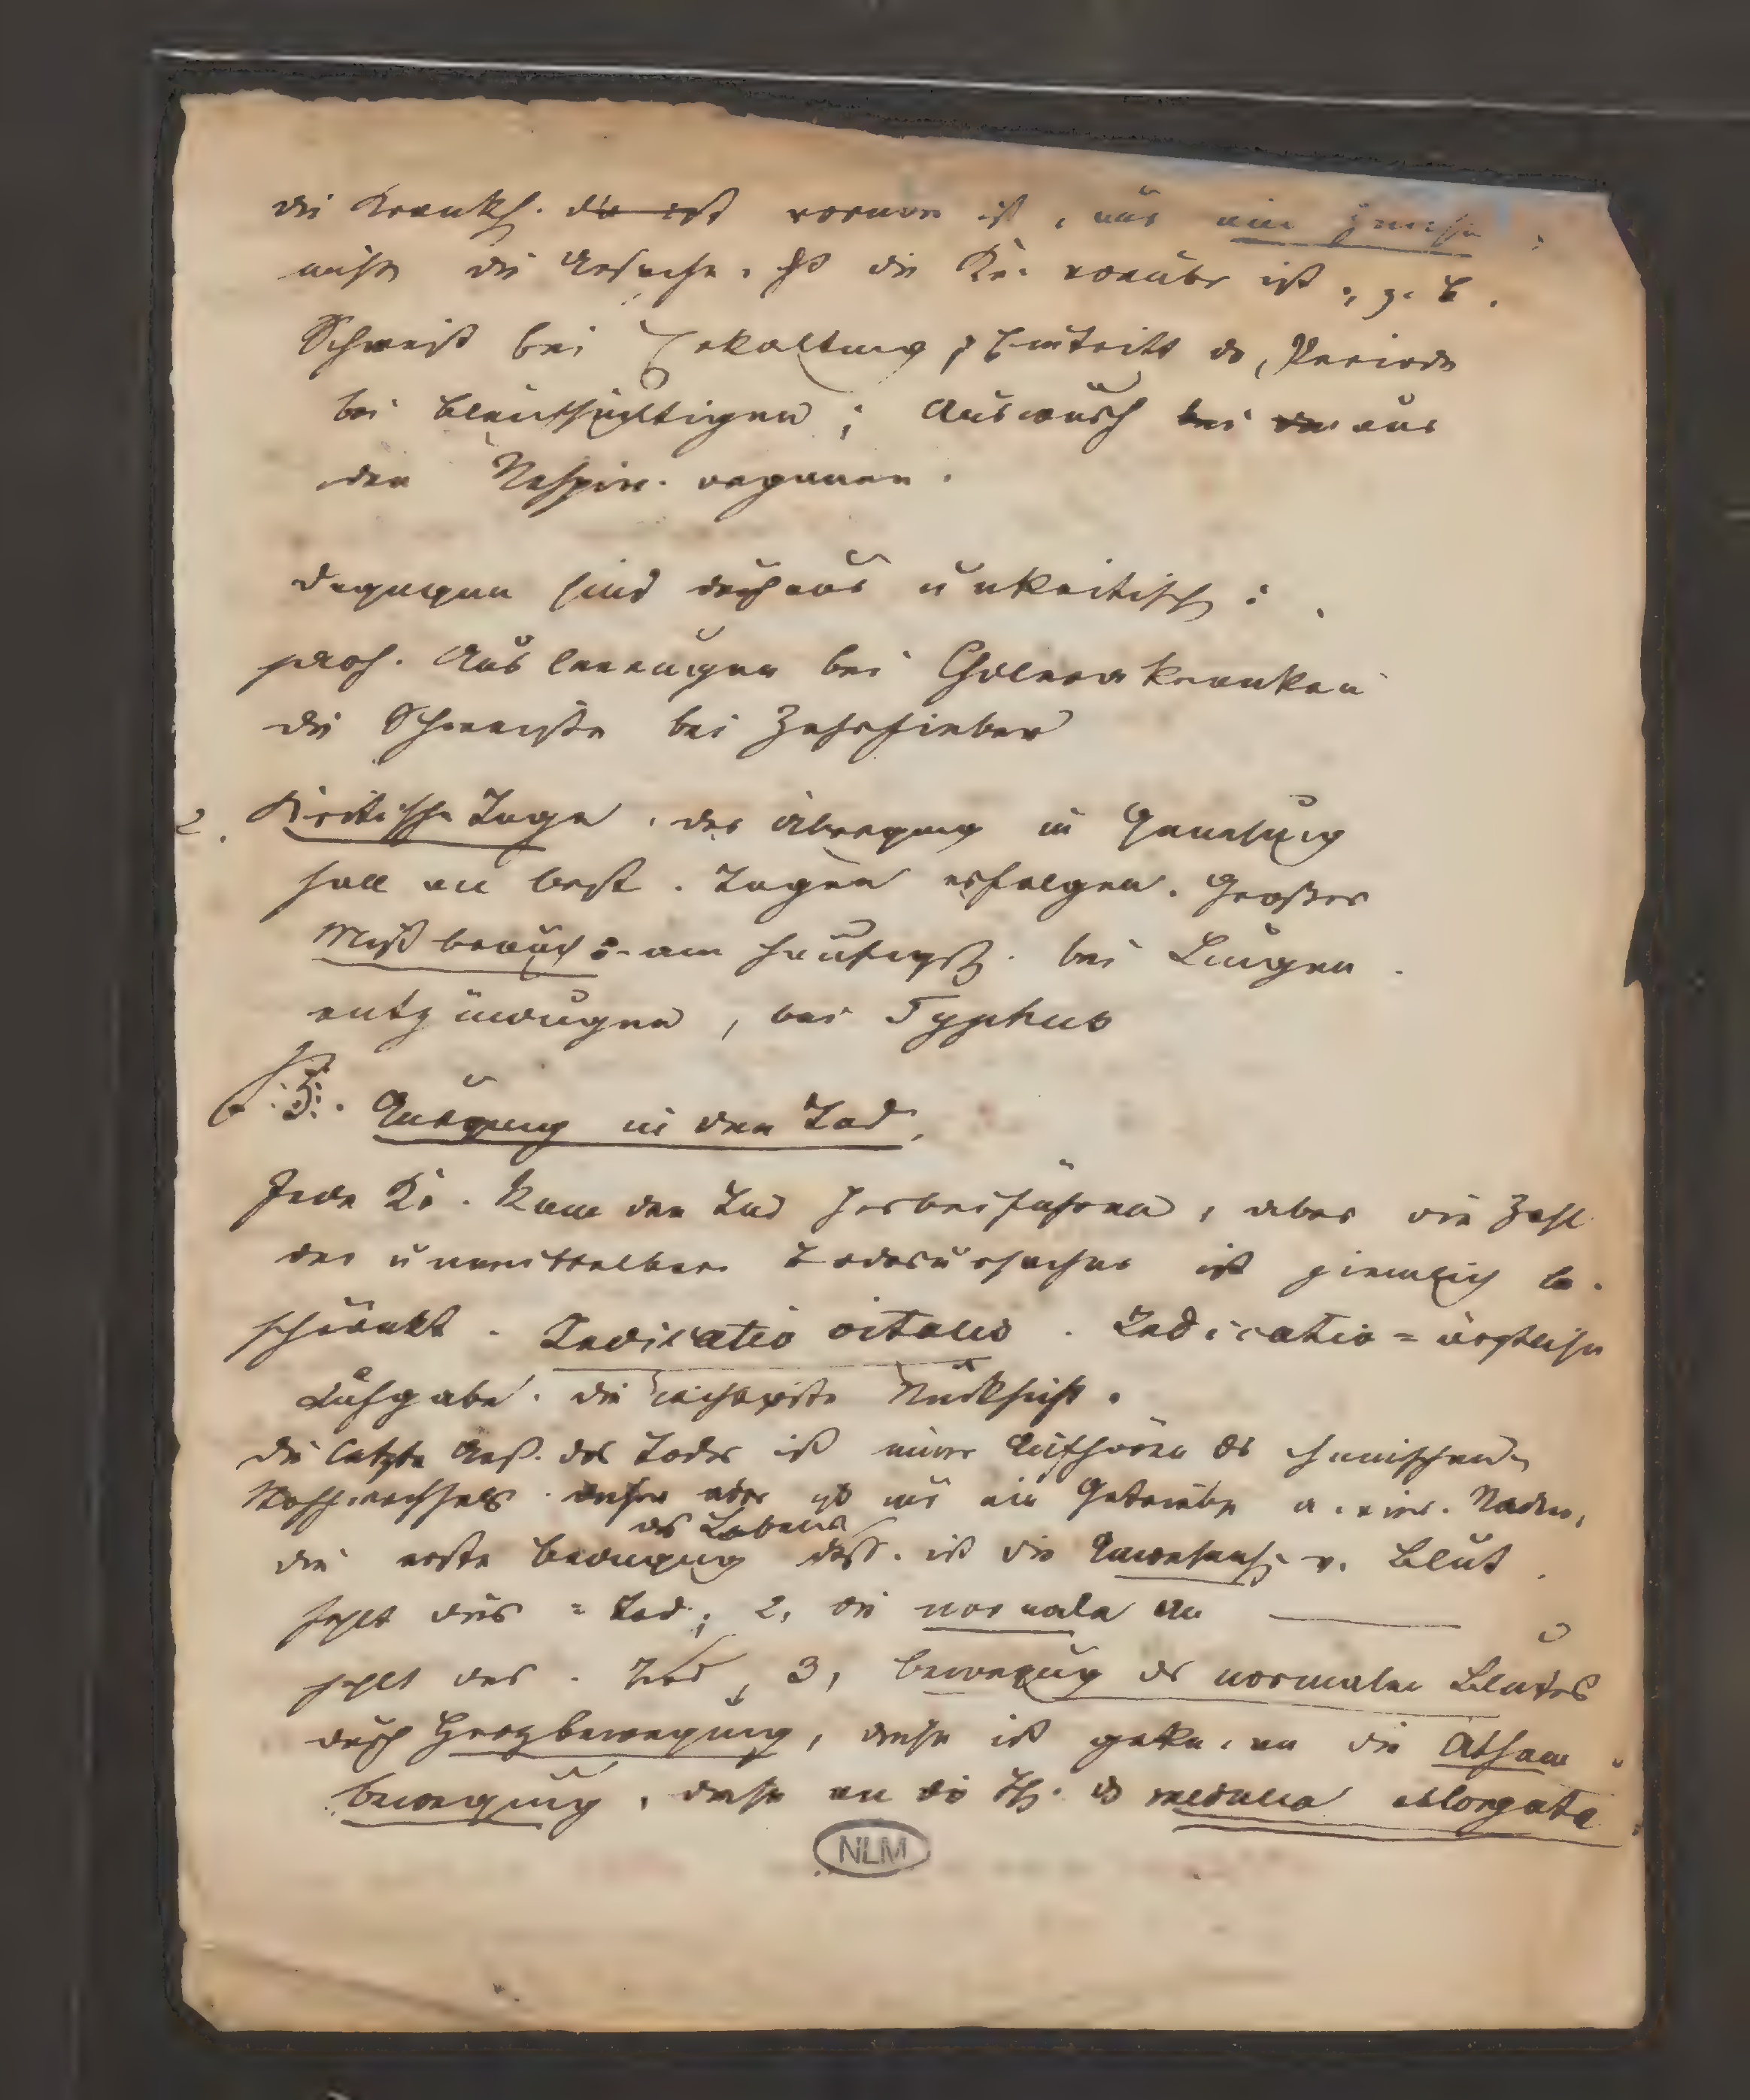 die Krankh. die ist vorüber ist, nur ein Zeichen,
nicht die Ursache, daß die Kr. vorüber ist, z. B.
Schweiß bei Erkaltung, Eintritt der Periode
bei Bleichsüchtigen; Auswurf bei aus
den Respir. organen.
Dagegen sind durchaus unkritisch:
prof. Ausleerungen bei Cholerakranken
die Schweiße bei Zehrfieber
2. Kritische Tage. der Übergang in Genesung
soll an best. Tagen erfolgen. Großer
Mißbrauch: am häufigst. bei Lungen
entzündungen, bei Typhus
§. 3. Ausgang in den Tod.
Jede Kr. kann den Tod herbeiführen, aber die Zahl
der unmittelbaren Todesursachen ist ziemlich be-
schränkt. Indicatio vitalis. Indicatio = ärztliche
Aufgabe. die wichtigste Rücksicht.
die letzte Urs. des Todes ist immer Aufhören des chemischen
Stoffwechsels. ein Getriebe Rädern,
des Lebens
die erste Bewegung dess. ist die Anwesenh. v. Blut
fehlt dies = Tod; 2, die normale An
fehlt das. Tod, 3, Bewegung des normalen Blutes
durch Herzbewegung, diese ist gekn. an die Athem
bewegung, diese an die Th. der medulla oblongata
NLM